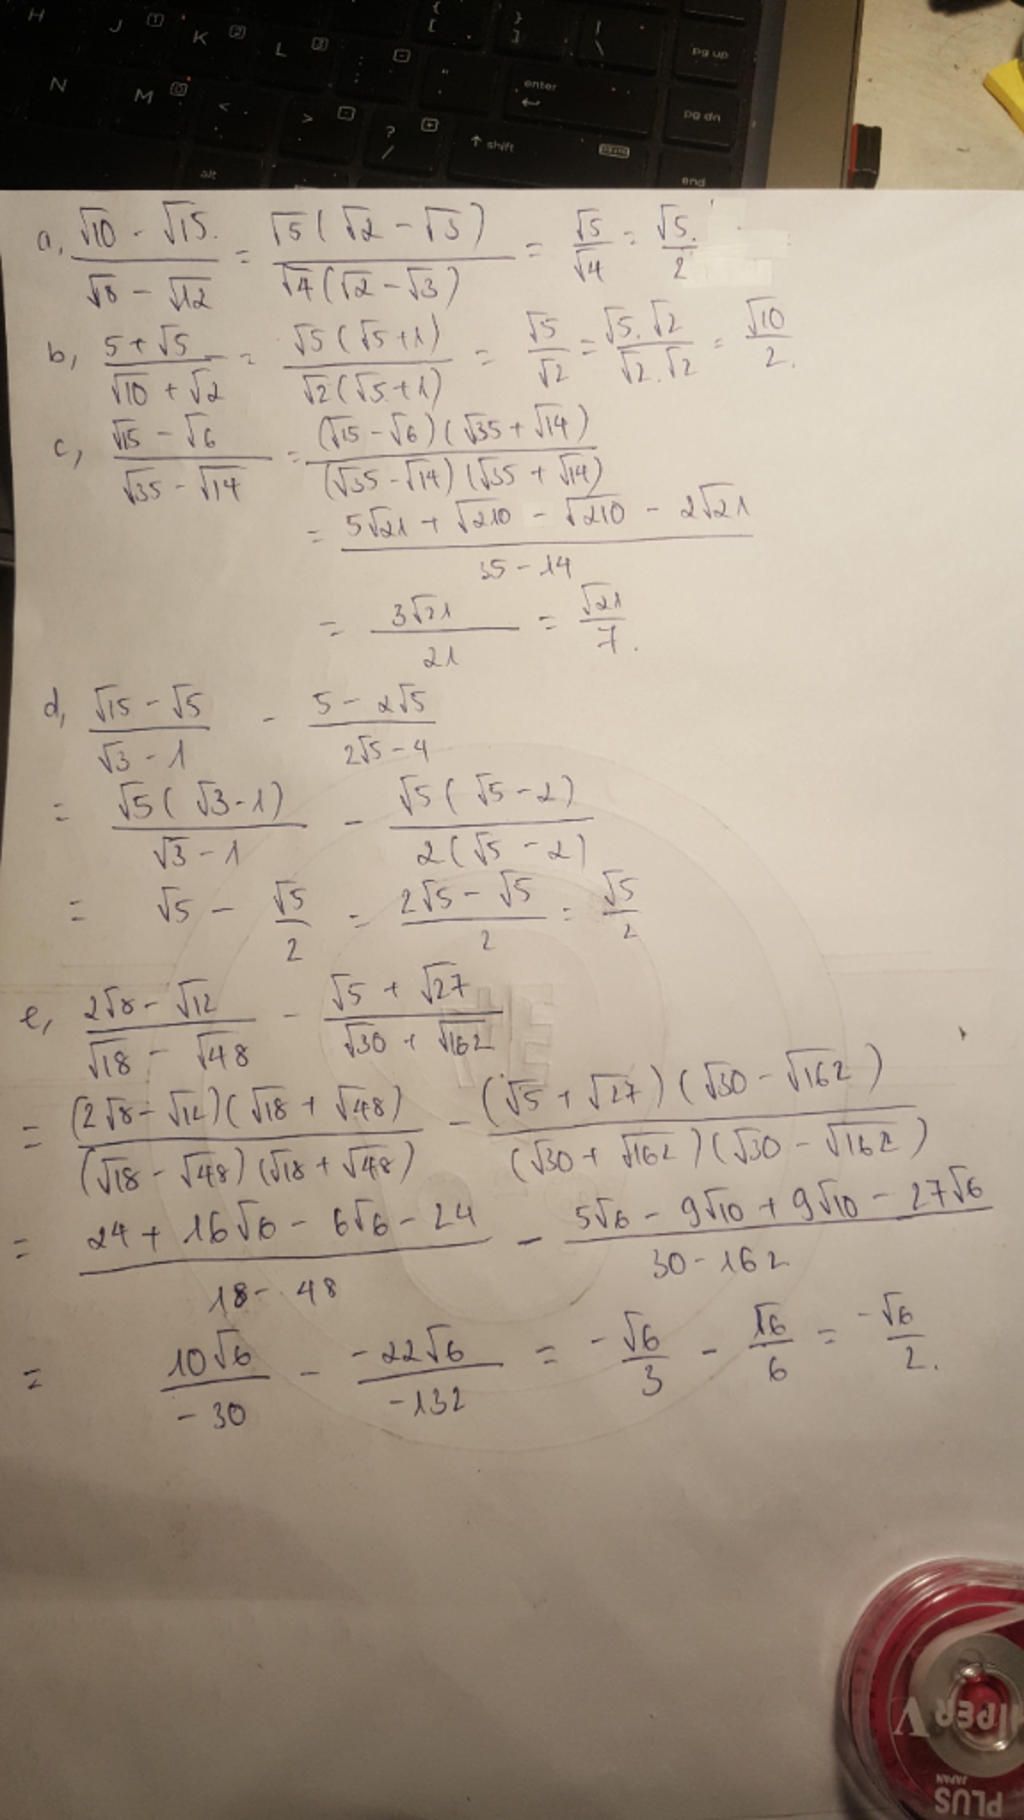 H J 1 K 2 L 3 : ; - " ' { [ } ] | \ pg up
N M 0 < , > . ? / + enter pg dn
alt ↑ shift end
a, (√10 - √15)/(√8 - √12) = √5(√2 - √3)/√4(√2 - √3) = √5/√4 = √5/2
b, (5 + √5)/(√10 + √2) = √5(√5 + 1)/√2(√5 + 1) = √5/√2 = √5.√2/√2.√2 = √10/2.
c, (√15 - √6)/(√35 - √14) = (√15 - √6)(√35 + √14)/(√35 - √14)(√35 + √14)
= (5√21 + √210 - √210 - 2√21)/(35 - 14)
= 3√21/21 = √21/7.
d, (√15 - √5)/(√3 - 1) - (5 - 2√5)/(2√5 - 4)
= √5(√3 - 1)/(√3 - 1) - √5(√5 - 2)/2(√5 - 2)
= √5 - √5/2 = (2√5 - √5)/2 = √5/2
e, (2√8 - √12)/(√18 - √48) - (√5 + √27)/(√30 + √162)
= (2√8 - √12)(√18 + √48)/(√18 - √48)(√18 + √48) - (√5 + √27)(√30 - √162)/(√30 + √162)(√30 - √162)
= (24 + 16√6 - 6√6 - 24)/(18 - 48) - (5√6 - 9√10 + 9√10 - 27√6)/(30 - 162)
= 10√6/-30 - -22√6/-132 = -√6/3 - √6/6 = -√6/2.
PER V
PLUS
JAPAN